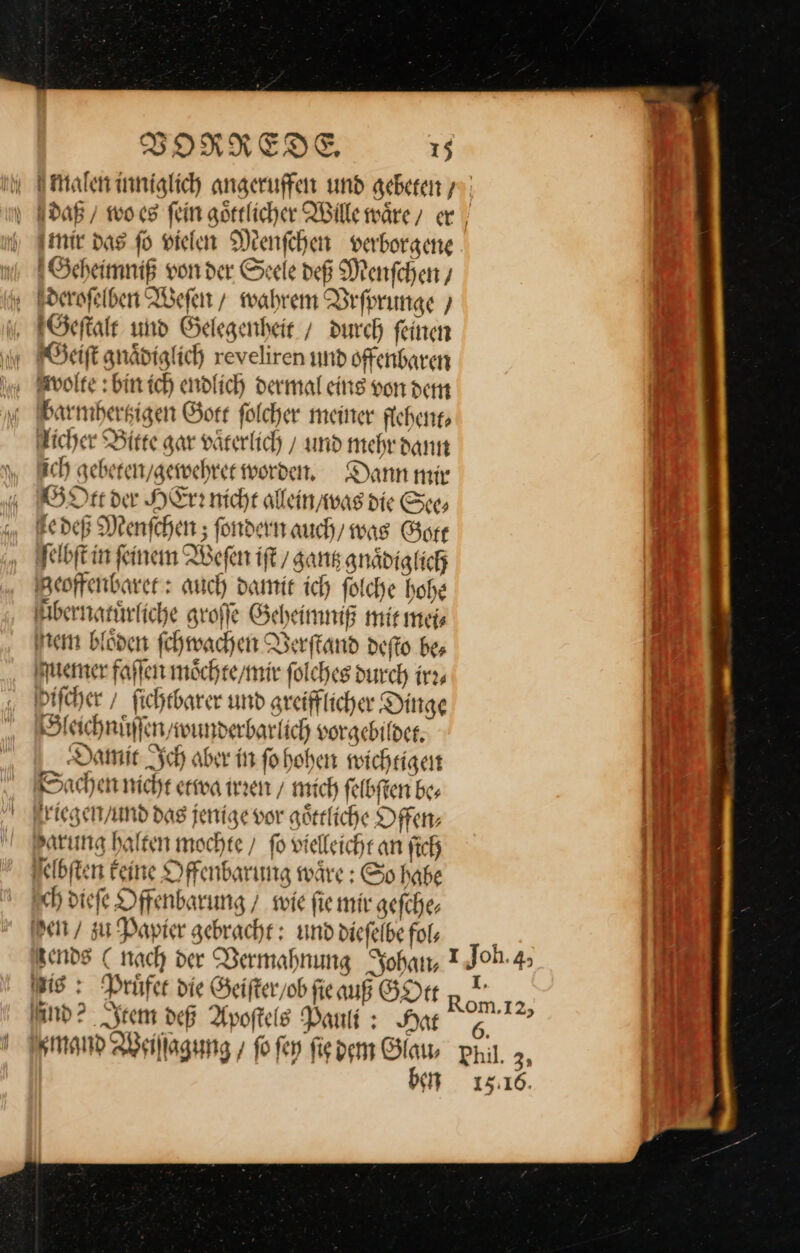 VORREDE. 15
malen inniglich angeruffen und gebeten /
daß / wo es ſein goͤttlicher Wille waͤre / er
mir das ſo vielen Menſchen verborgene
Geheimniß von der Seele deß Menſchen /
deroſelben Weſen / wahrem Vrſprunge /
Geſtalt und Gelegenheit / durch ſeinen
Geiſt gnaͤdiglich reveliren und offenbaren
wolte : bin ich endlich dermal eins von dem
barmhertzigen Gott ſolcher meiner flehent⸗
licher Bitte gar vaͤterlich / und mehr dann
ich gebeten/gewehret worden. Dann mir
GOtt der HErꝛ nicht allein/was die See⸗
le deß Menſchen ; ſondern auch/ was Gott
ſelbſt in ſeinem Weſen iſt / gantz gnaͤdiglich
geoffenbaret : auch damit ich ſolche hohe
uͤbernatuͤrliche groſſe Geheimniß mit mei⸗
nem bloͤden ſchwachen Verſtand deſto be⸗
quemer faſſen moͤchte/mir ſolches durch irꝛ⸗
diſcher / ſichtbarer und greifflicher Dinge
Gleichnuͤſſen/wunderbarlich vorgebildet.
Damit Ich aber in ſo hohen wichtigen
Sachen nicht etwa irꝛen / mich ſelbſten be⸗
kriegen/und das jenige vor goͤttliche Offen⸗
barung halten mochte / ſo vielleicht an ſich
ſelbſten keine Offenbarung waͤre : So habe
ich dieſe Offenbarung / wie ſie mir geſche⸗
hen / zu Papier gebracht : und dieſelbe fol⸗
gends ( nach der Vermahnung Johan⸗ 1 Joh. 4,
nis : Pruͤfet die Geiſter/ob ſie auß GOtt 1.
ſind ? Item deß Apoſtels Pauli : Hat Rom. 12,
jemand Weiſſagung / ſo ſey ſie dem Glau⸗ 6. Phil. 3,
ben 15.16.